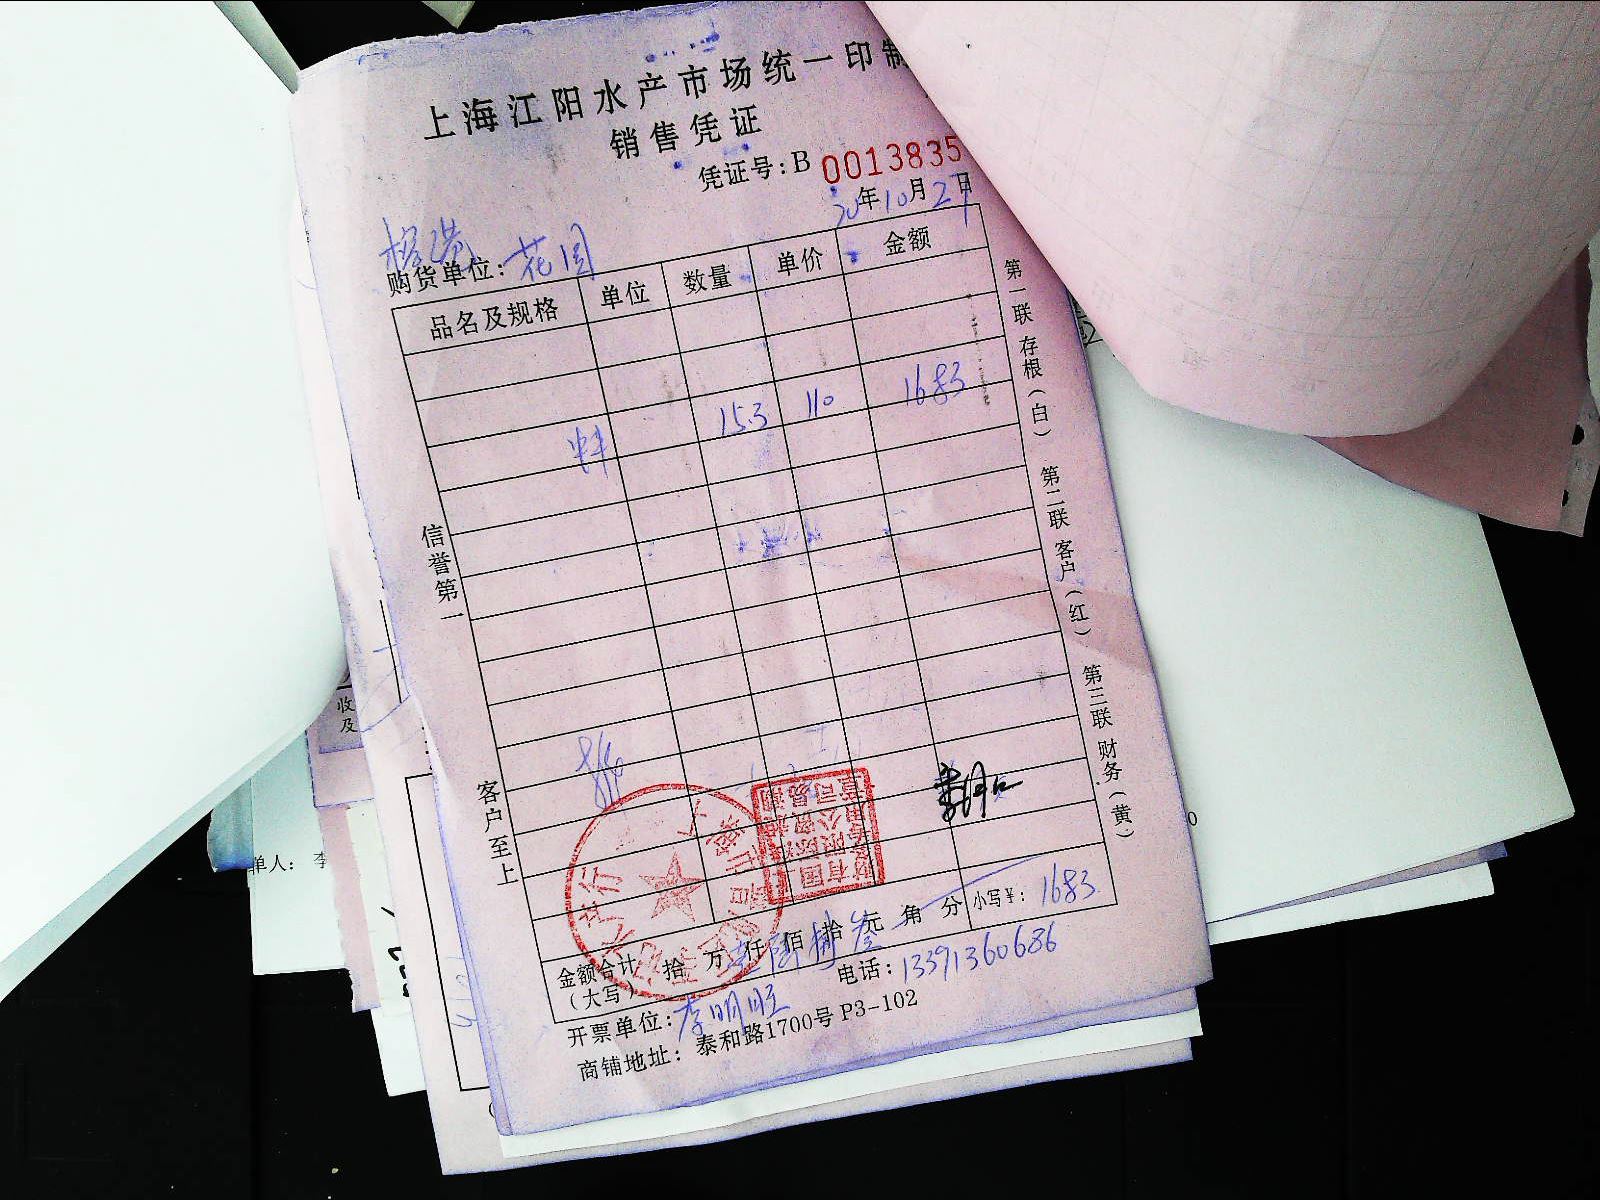 上海江阳水产市场统一印制
销售凭证
凭证号:B 0013835
20年10月27日
购货单位: 花园
品名及规格 单位 数量 单价 金额
15.3 110 1683
信誉第一
客户至上
第一联 存根(白) 第二联 客户(红) 第三联 财务(黄)
金额合计 拾 万 仟 佰 拾 叁元 角 分 小写¥: 1683
(大写)
开票单位: 李明旺 电话: 13391360686
商铺地址: 泰和路1700号 P3-102
收
及
单人: 李